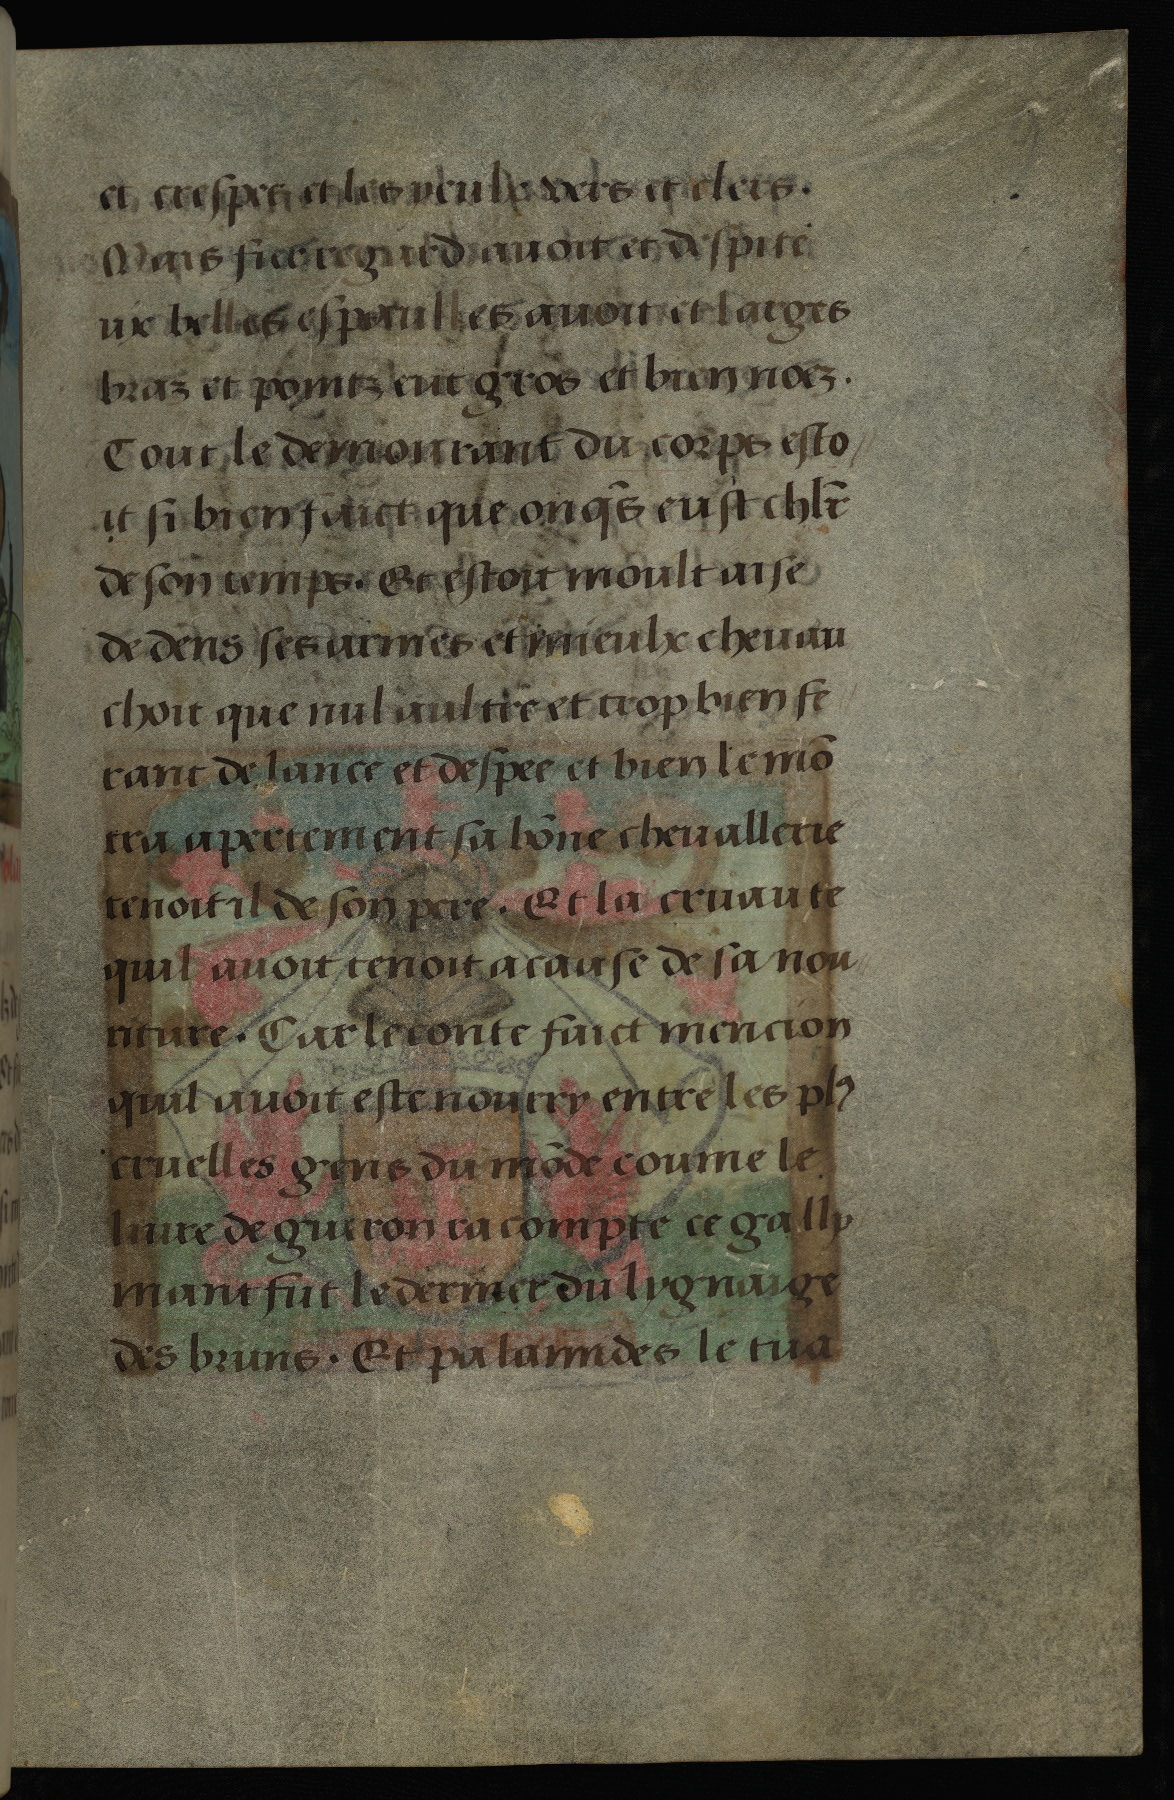 et crespes et les yeulx vers et clers.
Mais fier regard auoit et despite
ux belles espaulles auoit et larges
braz et pointz eut gros et bien noez.
Tout le demourant du corps esto//
it si bien faict que onqs̄ eust chlr̄
de son temps. Et estoit moult aise
de dens ses armes et mieulx cheuau
choit que nul aultre et trop bien fe//
rant de lance et despee et bien le mō
tra apertement sa bōne cheuallerie
tenoit il de son pere. Et la cruaute
quil auoit tenoit a cause de sa nou//
riture. Car le conte faict mencion
quil auoit este nourry entre les plꝰ
cruelles gens du mōde coume le
liure de guiron racompte ce gally
mant fut le dernier du lygnaige
des bruns. Et palamides le tua